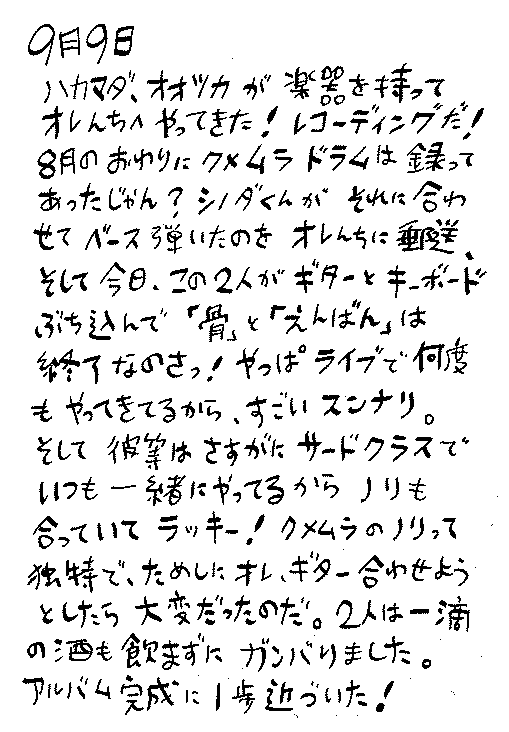 9月9日
ハカマダ、オオツカが楽器を持って
オレんちへやってきた！レコーディングだ！
8月のおわりにクメムラドラムは録って
あったじゃん？シノダくんがそれに合わ
せてベース弾いたのをオレんちに郵送、
そして今日、この2人がギターとキーボード
ぶち込んで「骨」と「えんばん」は
終了なのさっ！やっぱライブで何度
もやってきてるから、すごいスンナリ。
そして彼等はさすがにサードクラスで
いつも一緒にやってるからノリも
合っていてラッキー！クメムラのノリって
独特で、ためしにオレ、ギター合わせよう
としたら大変だったのだ。2人は一滴
の酒も飲まずにガンバりました。
アルバム完成に1歩近づいた！